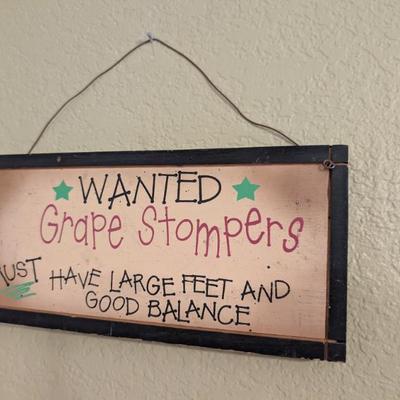 WANTED
Grape Stompers
MUST HAVE LARGE FEET AND
GOOD BALANCE